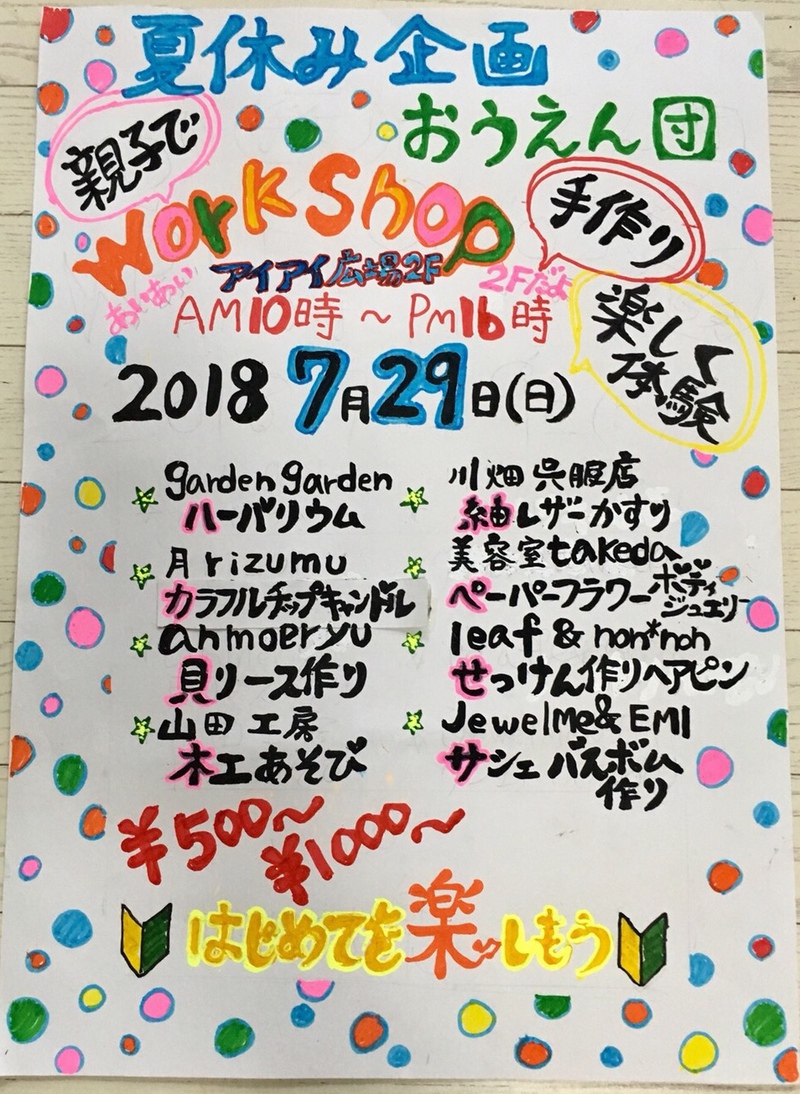 夏休み企画
おうえん団
親子で
workshop
手作り
アイアイ広場2F
あいあい
2Fだよ
AM10時～Pm16時
楽しく
体験
2018 7月29日(日)
garden garden
ハーバリウム
月rizumu
カラフルチップキャンドル
anmoeryu
貝リース作り
山田工房
木工あそび
川畑呉服店
紬レザーかすり
美容室takeda
ペーパーフラワーボディジュエリー
leaf & non*non
せっけん作りヘアピン
JewelMe& EMI
サシェ バスボム
作り
¥500～
¥1000～
はじめてを楽しもう